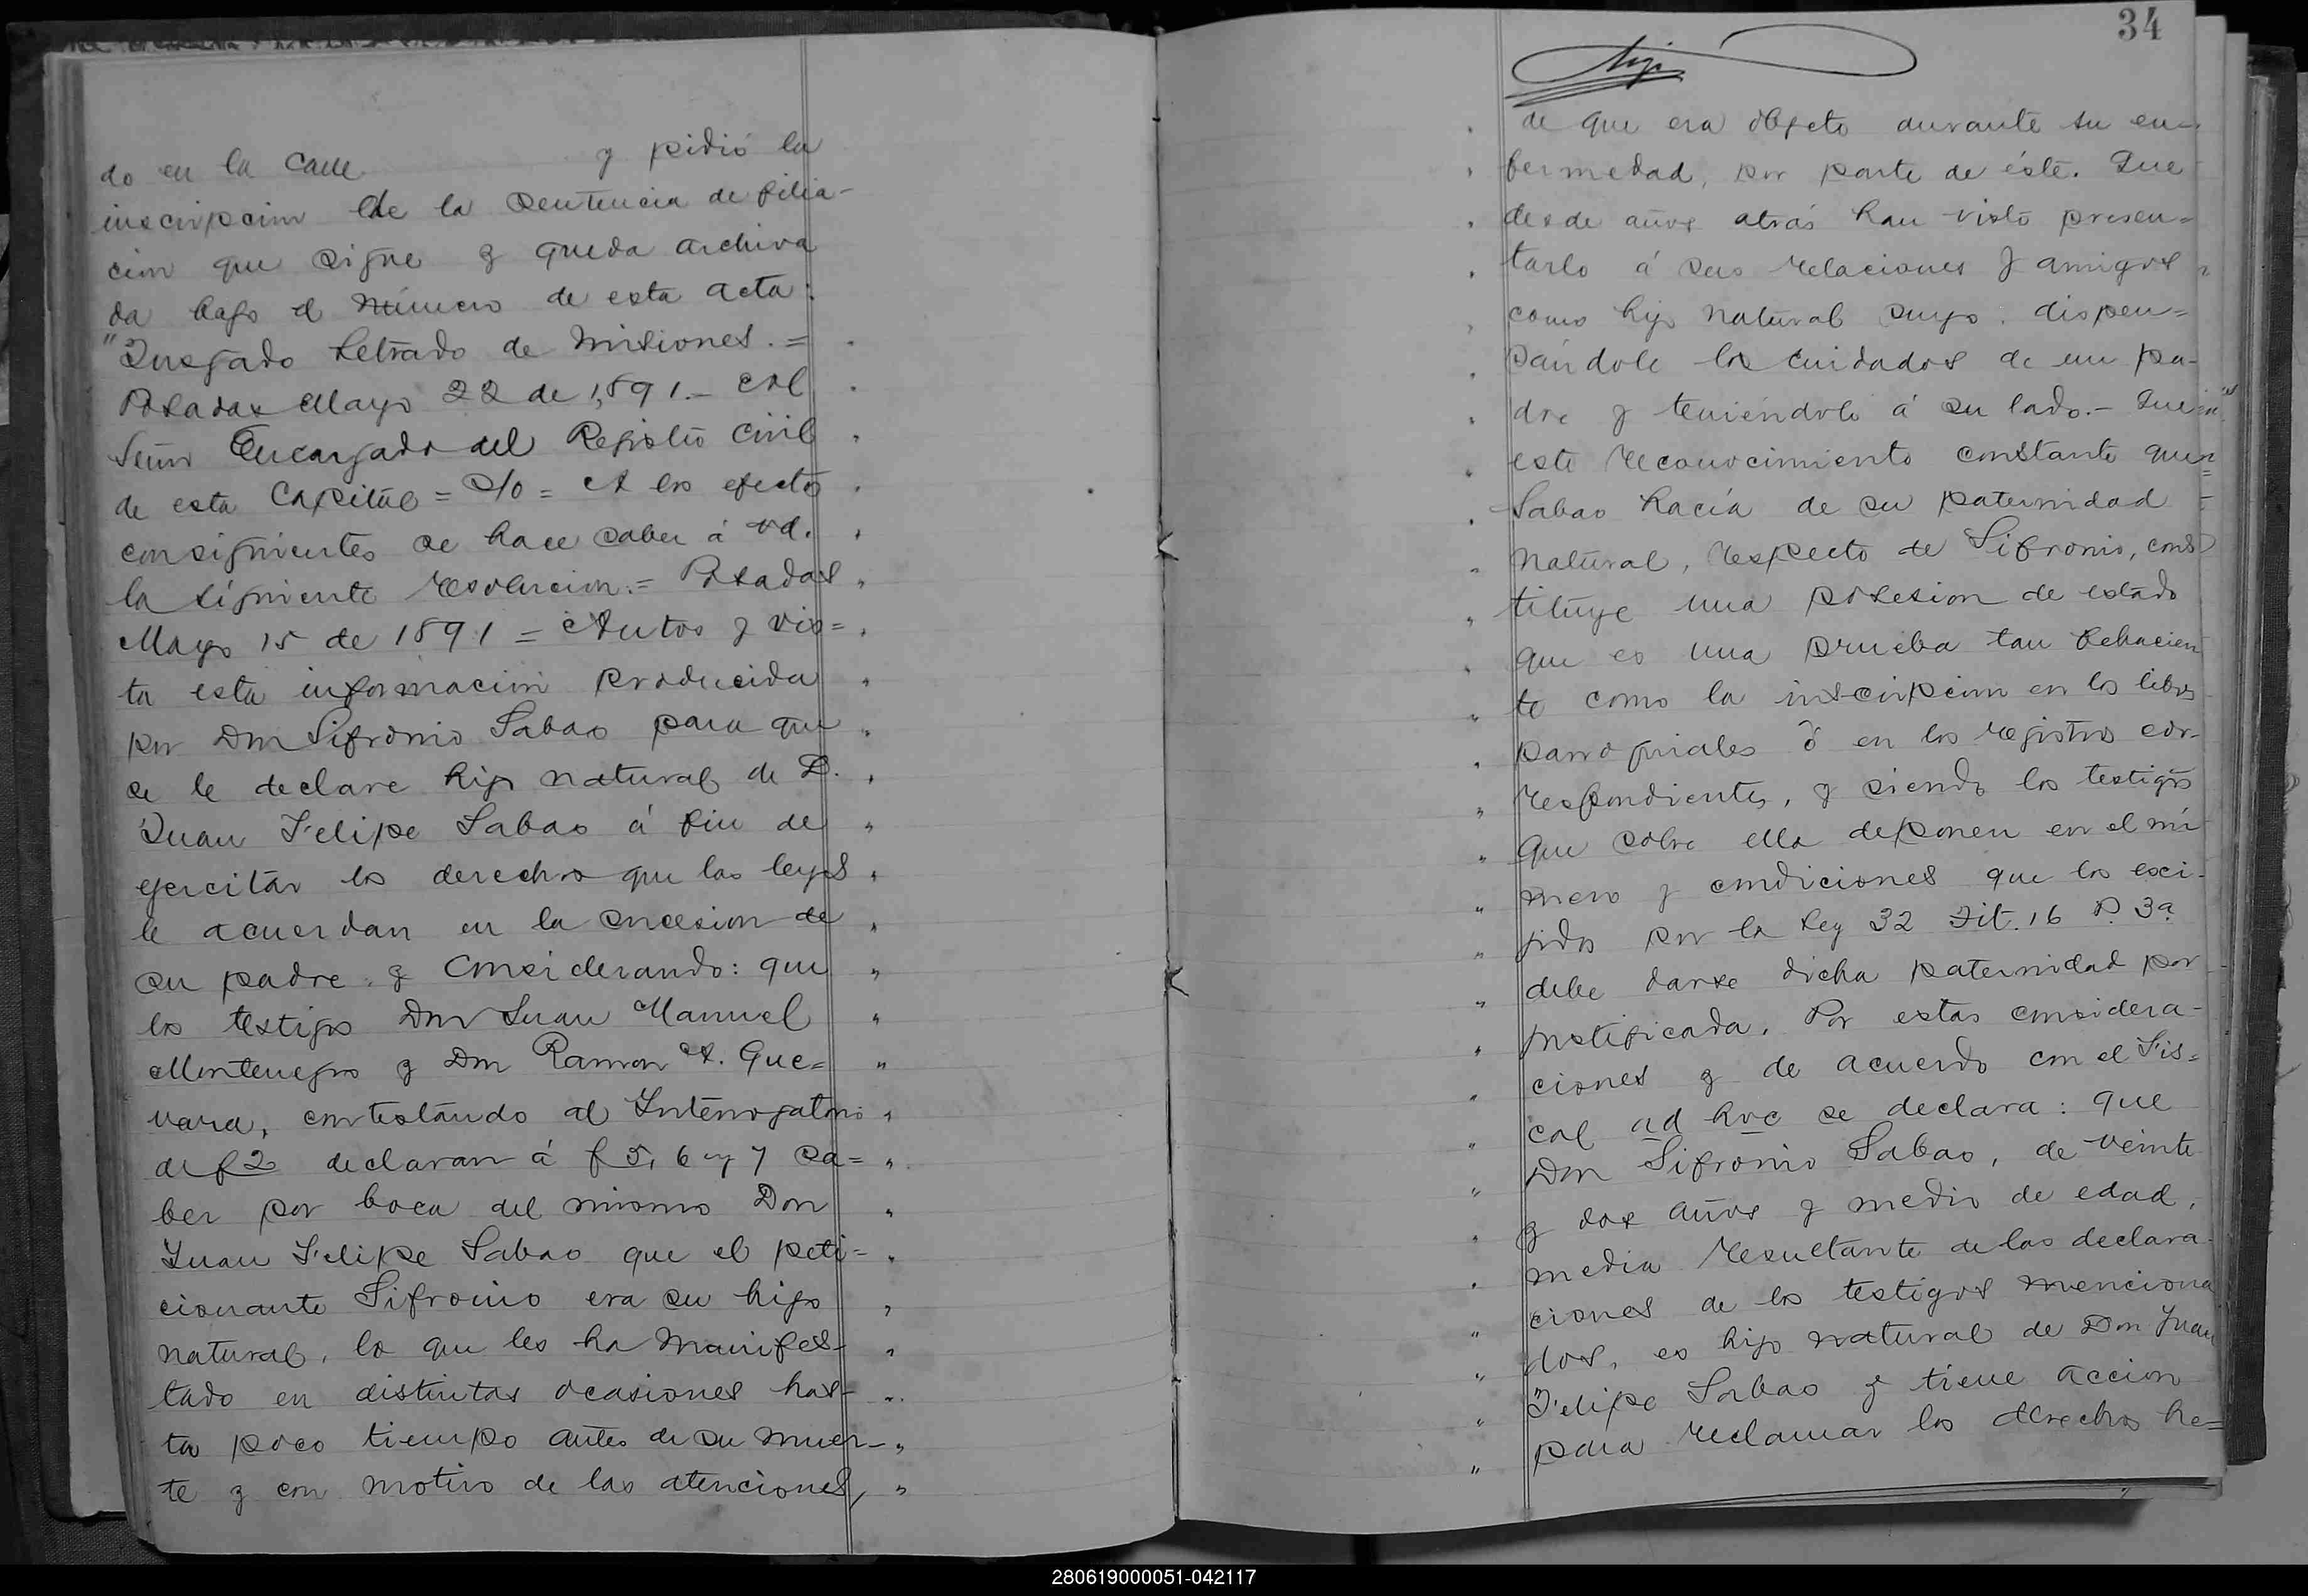 do en la calle y pidió la
inscripcion de la Sentencia de filia-
cion que sigue y queda archiva
da bajo el número de esta acta:
"Juzgado Letrado de Misiones. =
Posadas Mayo 22 de 1,891.- Al
Señor Encargado del Registro Civil
de esta Capital = S/o = A los efectos
consiguientes se hace saber á vd.
la siguiente resolucion: = Posadas
Mayo 15 de 1891 = Autos y vis=
ta esta informacion producida
por Don Sifronio Sabao para que
se le declare hijo natural de D.
Juan Felipe Sabao á fin de
ejercitar los derechos que las leyes
le acuerdan en la sucesion de
su padre. y Considerando: que
los testigos Don Juan Manuel
Montenegro y Don Ramon A. Gue=
vara, contestando al Interrogatorio
de f 2 declaran á f 5, 6 y 7 sa=
ber por boca del mismo Don
Juan Felipe Sabao que el peti=
cionante Sifronio era su hijo
natural, lo que les ha manifes-
tado en distintas ocasiones has-
ta poco tiempo antes de su muer-
te y con motivo de las atenciones,
34
hijo
de que era objeto durante su en-
fermedad, por parte de éste. Que
desde años atrás han visto presen=
tarlo á sus relaciones y amigos
como hijo natural suyo. dispen=
sándole los cuidados de un pa-
dre y teniéndolo á su lado.- Que
este reconocimiento constante que
Sabao hacía de su paternidad
natural, respecto de Sifronio, cons
tituye una posesion de estado
que es una prueba tan fehacien
te como la inscripcion en los libros
parroquiales ó en los registros cor-
respondientes, y siendo los testigos
que sobre ella deponen en el nú
mero y condiciones que los exci-
jidos por la Ley 32 Tit. 16 P. 3ª
debe darse dicha paternidad por
justificada. Por estas considera-
ciones y de acuerdo con el Fis=
cal ad hoc se declara: que
Don Sifronio Sabao, de veinte
y dos años y medio de edad,
media resultante de las declara-
ciones de los testigos menciona
dos, es hijo natural de Don Juan
Felipe Sabao y tiene accion
para reclamar los derechos he=
280619000051-042117